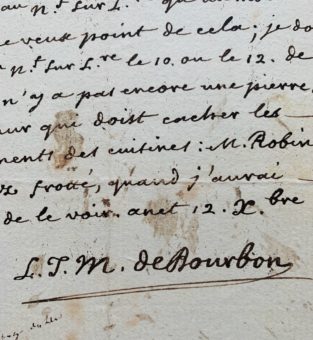 au n.t sur L.re qu'un
e veux point de cela; je do
n.t sur L.re le 10. ou le 12. de
n'y a pas encore une pierre,
ur qui doist cacher les
ments des cuisines: M. Robin
z frotté, quand j'aurai
de le voir. anet 12. X.bre
L. J. M. de Bourbon